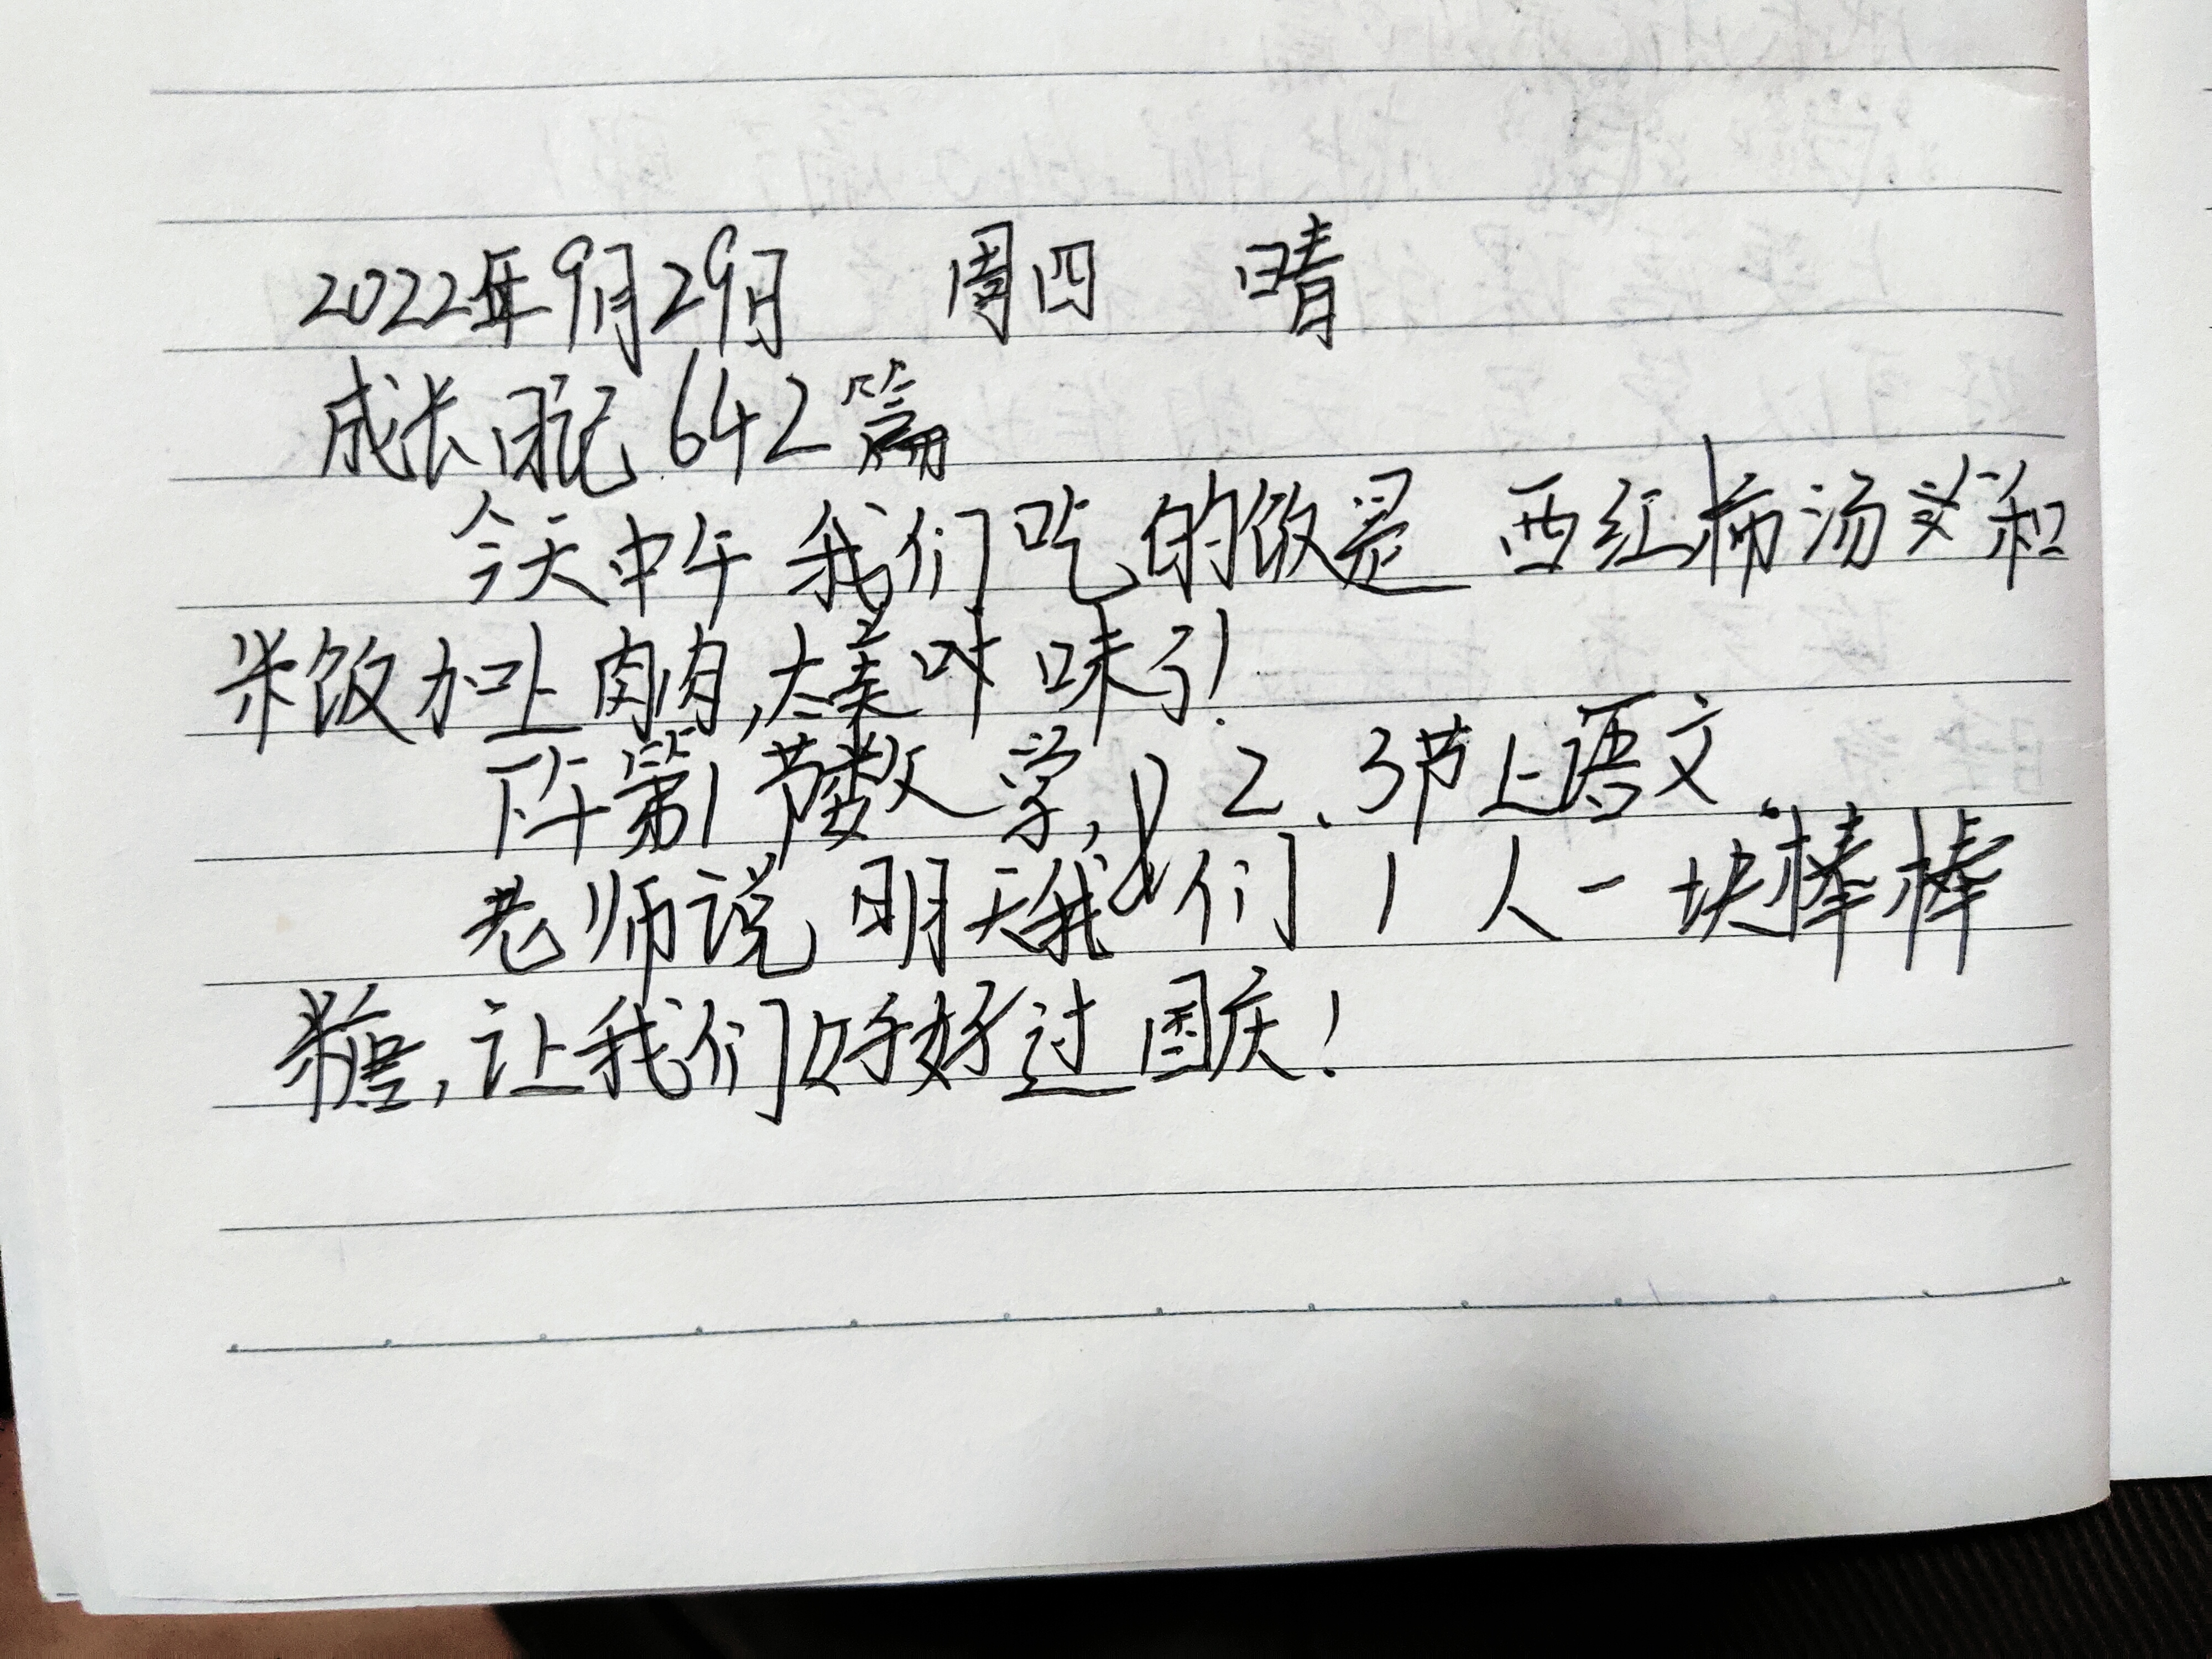 2022年9月29日 周四 晴
成长日记642篇
今天中午我们吃的饭是西红柿汤和
米饭加上肉肉,太美味了!
下午第1节数学,2、3节上语文.
老师说明天我们1人一块棒棒
糖,让我们好好过国庆!